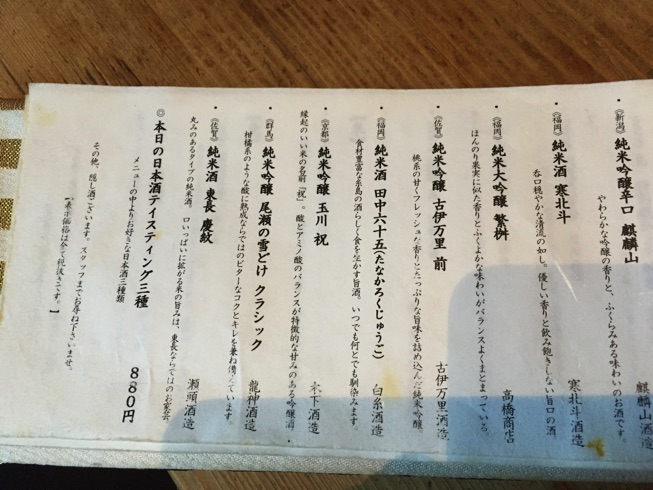 ・《新潟》純米吟醸辛口 麒麟山 麒麟山酒造
やわらかな吟醸の香りと、ふくらみある味わいのお酒です。
・《福岡》純米酒 寒北斗 寒北斗酒造
呑口穏やかな清流の如し、優しい香りと飲み飽きしない旨口の酒
・《福岡》純米大吟醸 繁桝 高橋商店
ほんのり果実に似た香りとふくよかな味わいがバランスよくまとまっている。
・《佐賀》純米吟醸 古伊万里 前 古伊万里酒造
桃系の甘くフレッシュな香りにたっぷりな旨味を詰め込んだ純米吟醸
・《福岡》純米酒 田中六十五(たなかろくじゅうご) 白糸酒造
食材豊富な糸島の酒らしく食を生かす旨酒。いつでも何とでも馴染みます。
・《京都》純米吟醸 玉川 祝 木下酒造
縁起のいい米の名前「祝」。酸とアミノ酸のバランスが特徴的な甘みのある吟醸酒。
・《群馬》純米吟醸 尾瀬の雪どけ クラシック 龍神酒造
柑橘系のような酸に熟成ならではのビターなコクとキレを兼ね備えています。
・《佐賀》純米酒 東長 慶紋 瀬頭酒造
丸みのあるタイプの純米酒。口いっぱいに拡がる米の旨みは、東長ならではのお家芸
◎本日の日本酒テイスティング三種 880円
メニューの中よりお好きな日本酒三種類
その他、隠し酒ございます。スタッフまでお尋ね下さいませ。
【表示価格は全て税抜きです。】